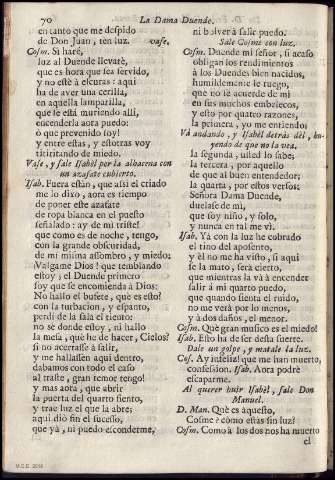 70
La Dama Duende.
en tanto que me despido
de Don Juan, ten luz. vase.
Cosm. Si haré,
luz al Duende llevaré,
que es hora que sea servido,
y no esté à escuras: aqui
ha de aver una cerilla,
en aquella lamparilla,
que se está muriendo alli,
encenderla aora puedo:
ò que prevenido soy!
y entre estas, y estotras voy
titiritando de miedo.
Vase, y sale Isabèl por la alhacena con
un azafate cubierto.
Isab. Fuera están, que assi el criado
me lo dixo, aora es tiempo
de poner este azafate
de ropa blanca en el puesto
señalado: ay de mi triste!
que como es de noche, tengo,
con la grande obscuridad,
de mi misma assombro, y miedo:
Valgame Dios! que temblando
estoy; el Duende primero
soy que se encomienda à Dios:
No hallo el bufete, què es esto?
con la turbacion, y espanto,
perdi de la sala el tiento:
no sè donde estoy, ni hallo
la mesa, què he de hacer, Cielos?
si no acertasse à salir,
y me hallassen aqui dentro,
dabamos con todo el caso
al traste, gran temor tengo!
y mas aora, que abrir
la puerta del quarto siento,
y trae luz el que la abre;
aqui diò sin el sucesso,
que yà, ni puedo esconderme,
ni bolver à salir puedo.
Sale Cosme con luz.
Cosm. Duende mi señor, si acaso
obligan los rendimientos
à los Duendes bien nacidos,
humildemente le ruego,
que no se acuerde de mi
en sus muchos embelecos,
y esto por quatro razones,
la primera, yo me entiendo;
Và andando, y Isabèl detrás dèl, hu-
yendo de que no la vea.
la segunda, usted lo sabe;
la tercera, por aquello
de que al buen entendedor;
la quarta, por estos versos:
Señora Dama Duende,
duelase de mi,
que soy niño, y solo,
y nunca en tal me vì.
Isab. Yà con la luz he cobrado
el tino del aposento,
y èl no me ha visto, si aqui
se la mato, será cierto,
que mientras la và à encender
salir à mi quarto puedo,
que quando sienta el ruido,
no me verá por lo menos,
y à dos daños, el menor.
Cosm. Què gran musico es el miedo!
Isab. Esto ha de ser desta suerte.
Dale un golpe, y matale la luz.
Cos. Ay infeliz! que me han muerto,
confession. Isab. Aora podrè
escaparme.
Al querer huir Isabèl, sale Don
Manuel.
D. Man. Què es aquesto,
Cosme? còmo estás sin luz?
Cosm. Como à los dos nos ha muerto
el